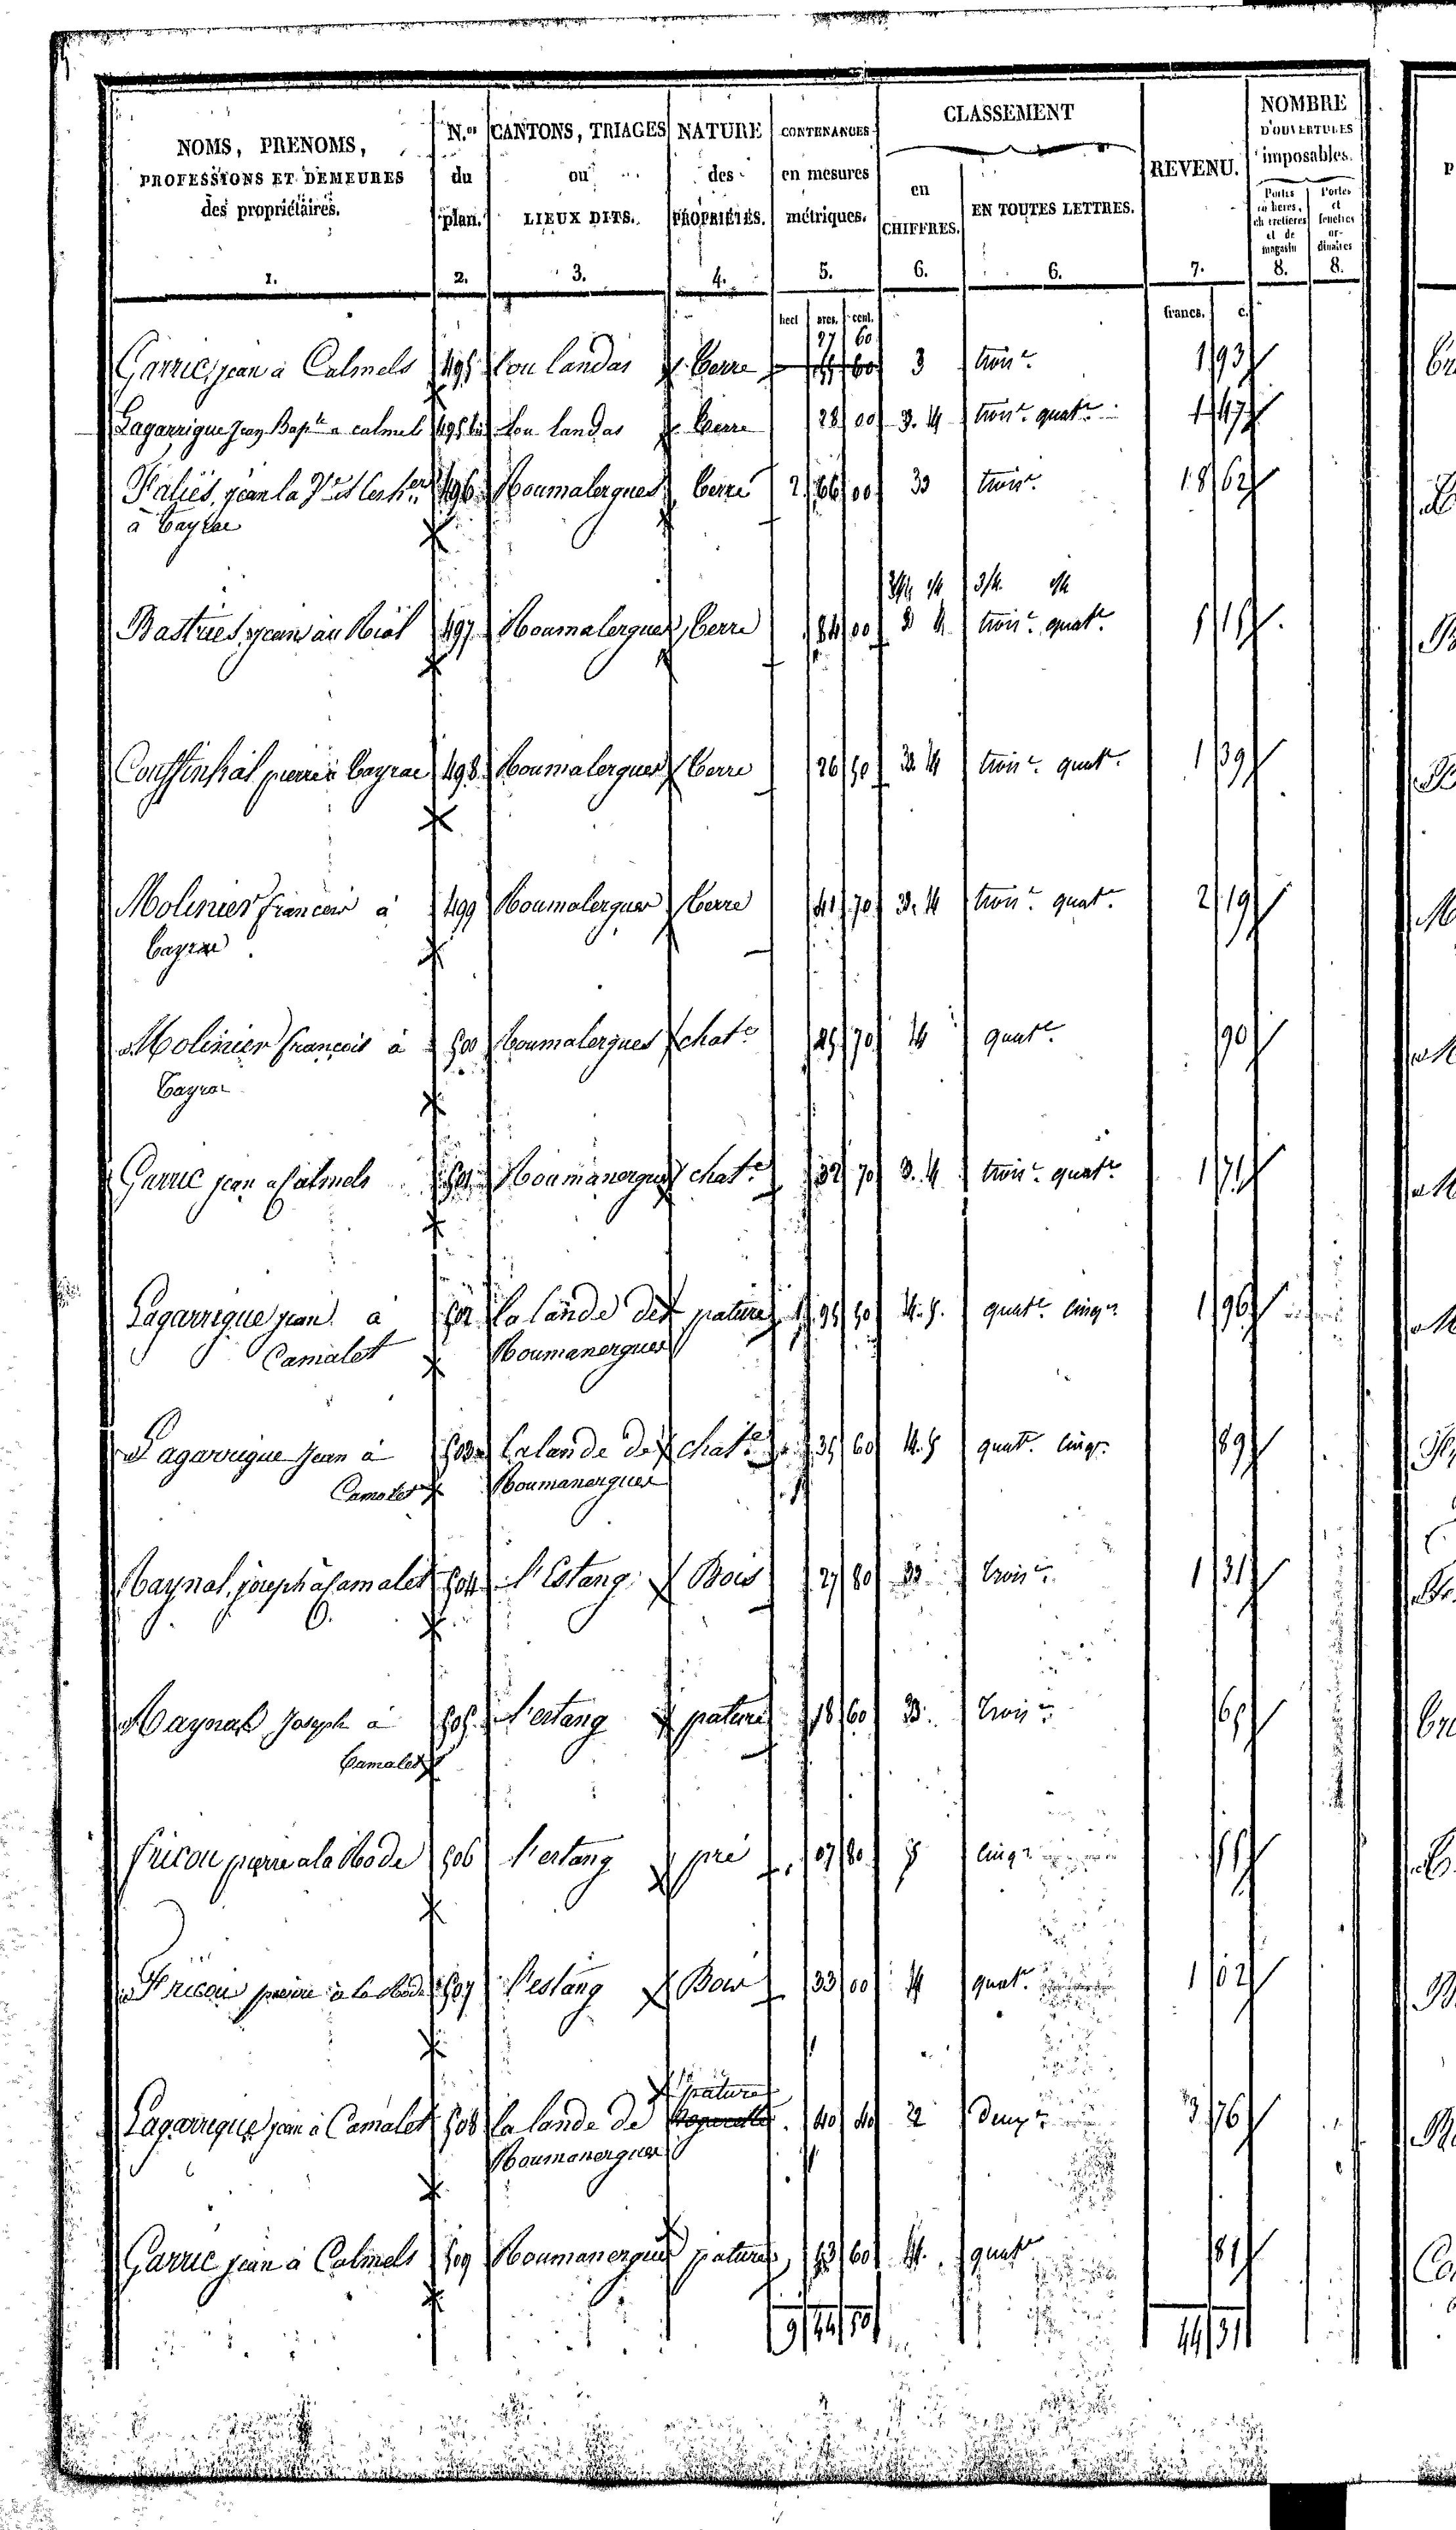 NOMS, PRENOMS, PROFESSIONS ET DEMEURES des propriétaires. N.os du plan. CANTONS, TRIAGES ou LIEUX DITS. NATURE des PROPRIÉTÉS. CONTENANCES en mesures métriques. CLASSEMENT en CHIFFRES. EN TOUTES LETTRES. REVENU. NOMBRE D'OUVERTURES imposables.
Portes cochères, charretières et de magasin Portes et fenêtres ordinaires
1. 2. 3. 4. 5. 6. 6. 7. 8. 8.
hect ares. cent. francs. c.
27 60
Garric, jean à Calmels 495 Lou landas Terre 3 trois.e 1 93
Lagarrigue Jean Bap.te a calmels 495 bis Lou landas Terre 28 00 3. 4 trois.e quat.e 1 47
Faliés, jean la V.e et les her.ers 496 Roumalergues Terre 2 66 00 3 trois.e 18 62
à Tayrac
3/4 1/4 3/4 1/4
Bastries, jean au Rial 497 Roumalergues Terre 84 00 3 4 trois.e quat.e 5 15
Couffinhal pierre à Tayrac 498 Roumalergues Terre 26 50 3. 4 trois.e quat.e 1 39
Molinier francois à 499 Roumalergues Terre 41 70 3. 4 trois.e quat.e 2 19
Tayrac
Molinier françois à 500 Roumalergues chat.e 25 70 4 quat.e 90
Tayrac
Garric jean a Calmels 501 Roumanergues chat.e 32 70 3. 4 trois.e quat.e 1 71
Lagarrigue jean à 502 la lande de pature 1 95 50 4. 5. quat.e cinq.e 1 96
Camalet Roumanergues
Lagarrigue Jean à 503 la lande de chat.e 35 60 4. 5 quat.e cinq.e 89
Camalet Roumanergues
Raynal, joseph à Camalet 504 l'Estang Bois 27 80 3 trois.e 1 31
Raynal Joseph à 505 l'estang pature 18 60 3. trois.e 65
Camalet
fricou pierre a la Rode 506 l'estang pré 07 80 5 cinq.e 55
Fricou pierre à la Rode 507 l'estang Bois 33 00 4 quat.e 1 02
pature
Lagarrigue jean à Camalet 508 la lande de 40 40 2 deux.e 3 76
Roumanergues
Garric jean à Calmels 509 Roumanergues pature 53 60 4. quat.e 81
9 44 50 44 31